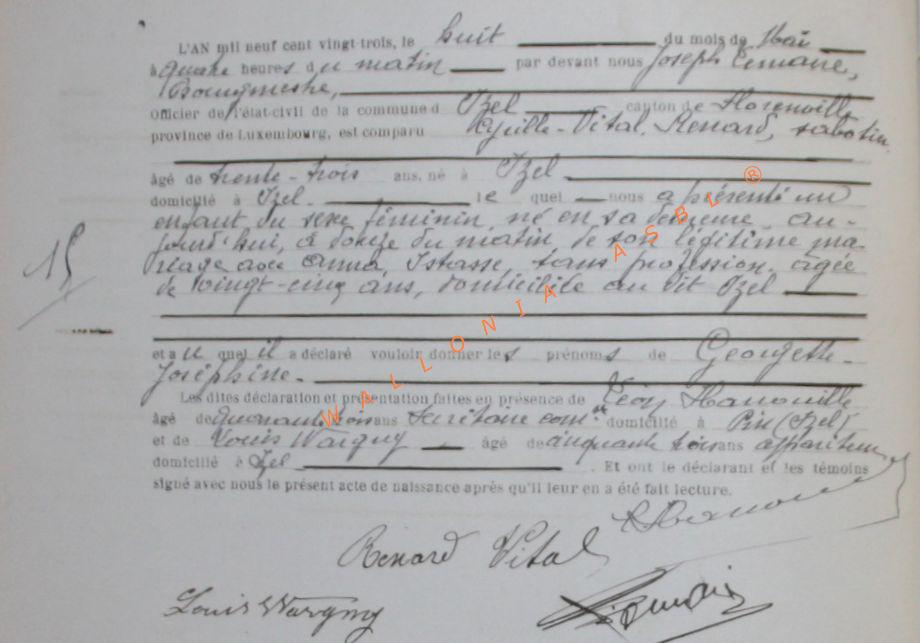 L'AN mil neuf cent vingt-trois, le huit du mois de Mai
à quatre heures du matin par devant nous Joseph
Bourgmestre,
Officier de l'état-civil de la commune d Izel canton de Florenville
province de Luxembourg, est comparu Vital, Renard, sabotier
âgé de trente-trois ans, né à Izel
domicilié à Izel. lequel nous a présenté un
enfant du sexe féminin, né en sa demeure, au-
jourd'hui, à du matin, de son légitime ma-
riage avec Anna, Istasse, sans profession, âgée
de vingt-cinq ans, domiciliée au dit Izel
15
et au quel il a déclaré vouloir donner les prénoms de Georgette-
Joséphine.
Les dites déclaration et présentation faites en présence de Léon Hanouille
âgé de quarante trois ans Secrétaire comal domicilié à Pin (Izel)
et de Louis Wargny âgé de cinquante trois ans appariteur
domicilié à Izel. Et ont le déclarant et les témoins
signé avec nous le présent acte de naissance après qu'il leur en a été fait lecture.
Renard Vital
Louis Wargny
WALLONIA ASBL ®